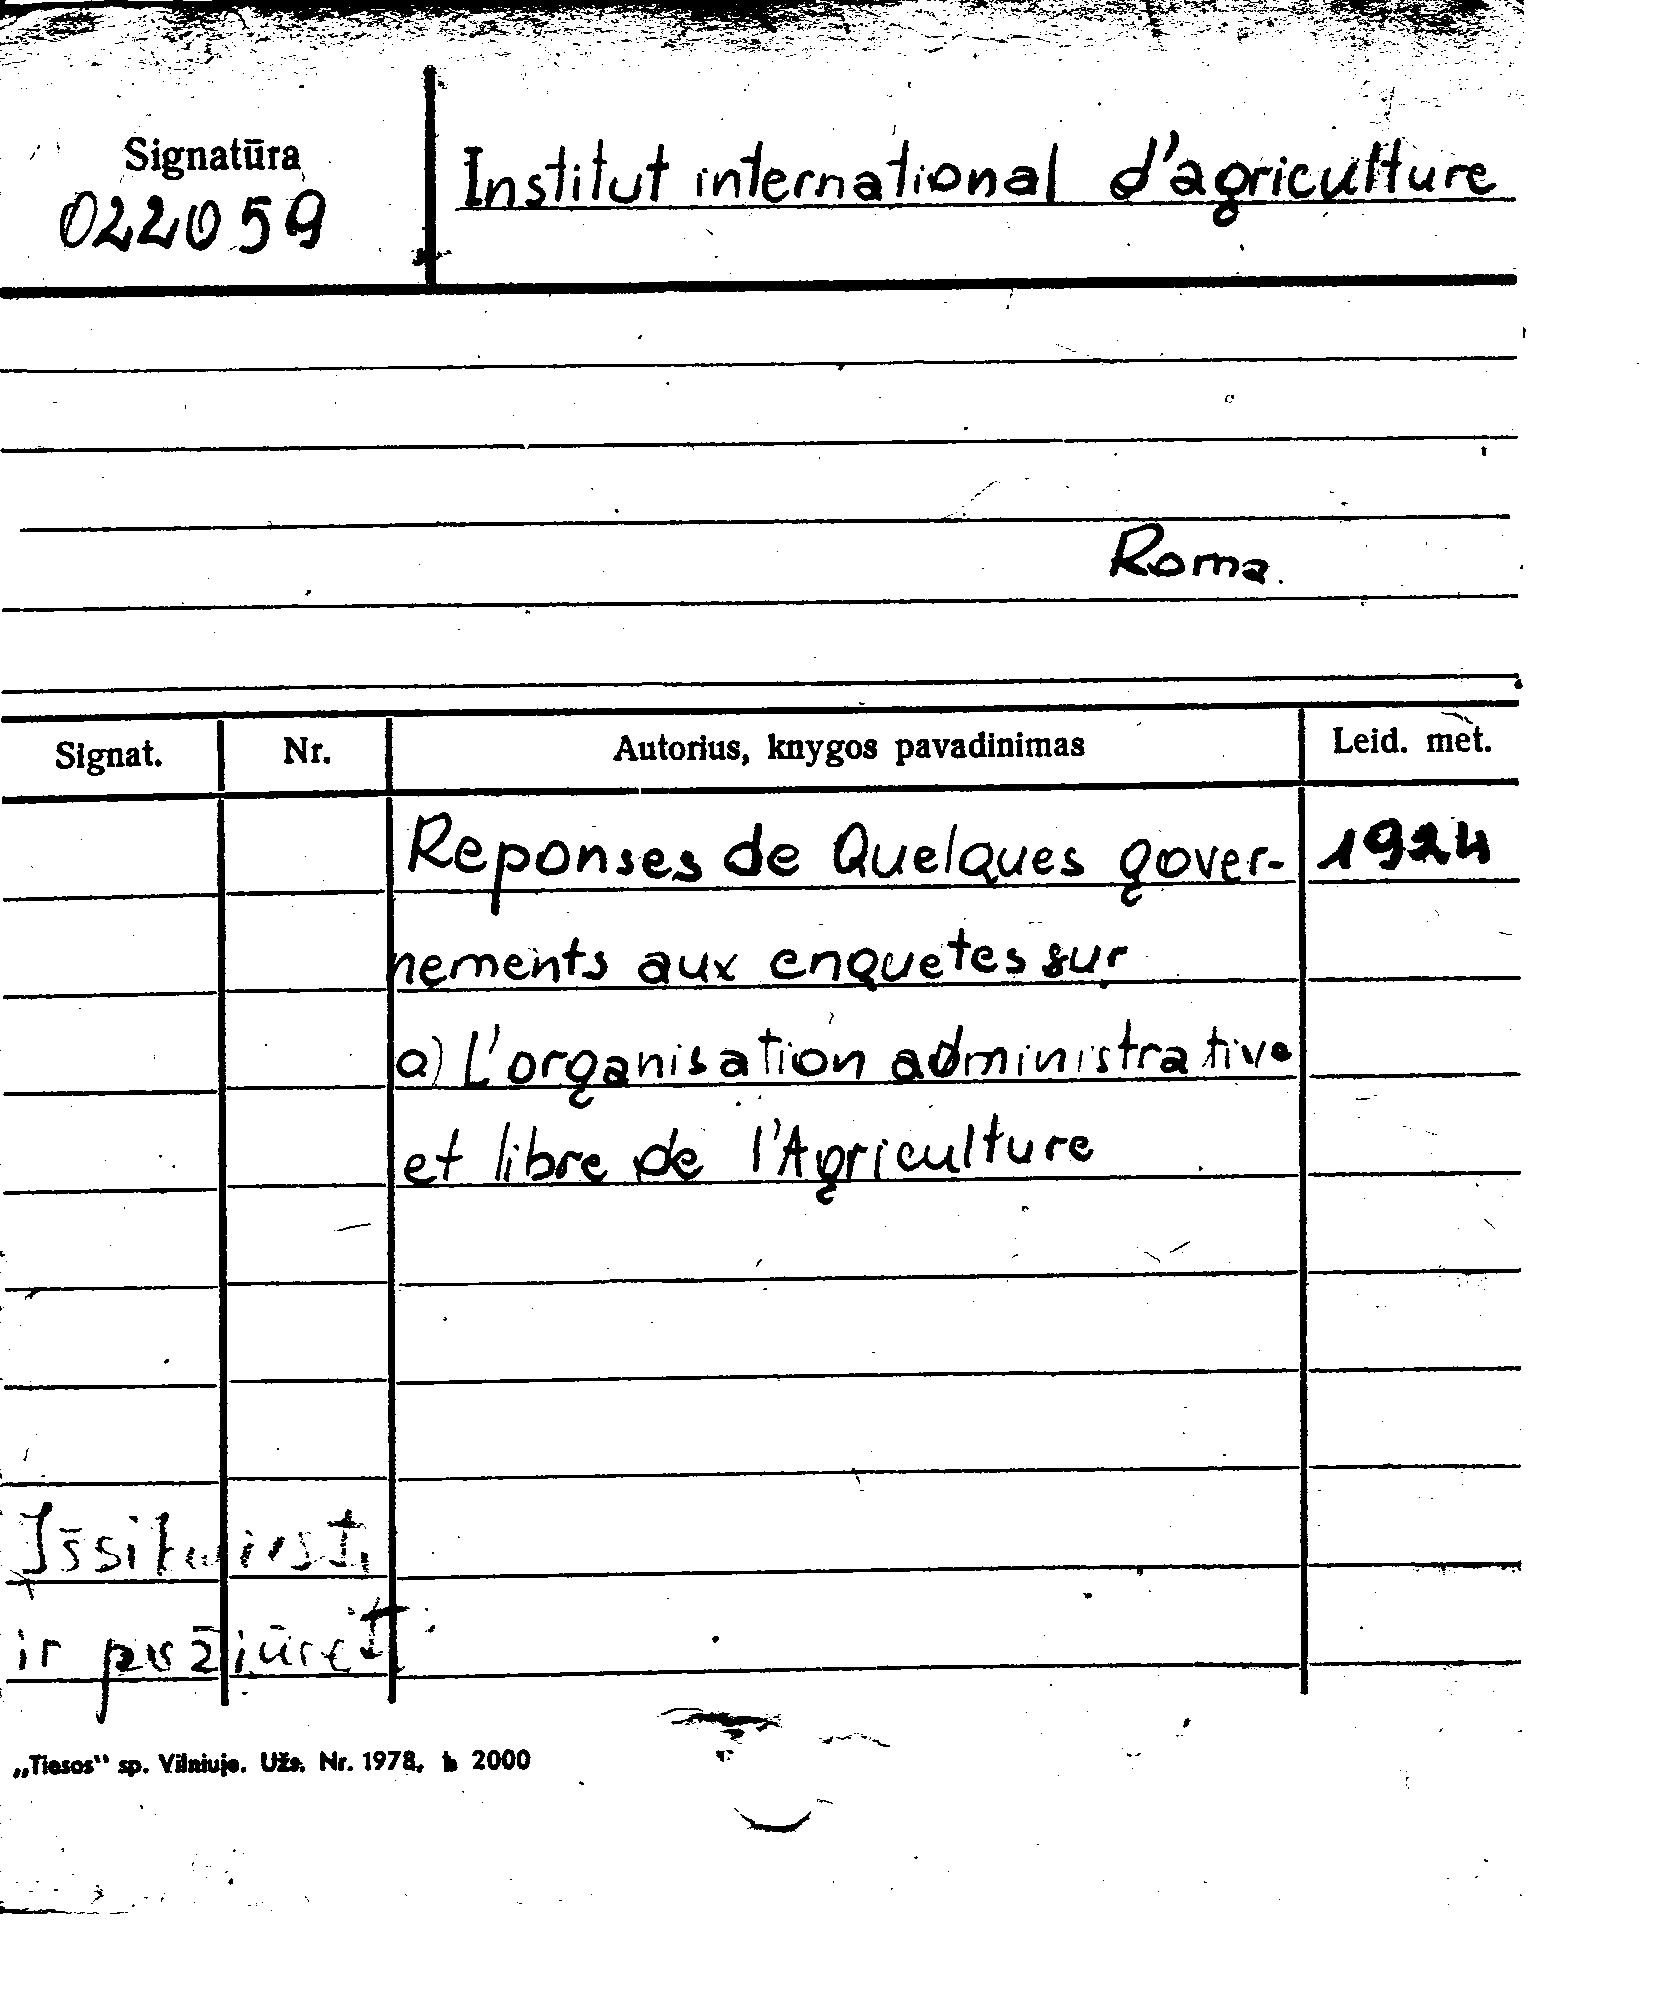 Signatūra
022059
Institut international d'agriculture
Roma.
Signat. Nr. Autorius, knygos pavadinimas Leid. met.
Reponses de Quelques gover- 1924
nements aux enquetes sur
a) L'organisation administrative
et libre de l'Agriculture
ir pažiūrėti
„Tiesos“ sp. Vilniuje. Užs. Nr. 1978, 2000